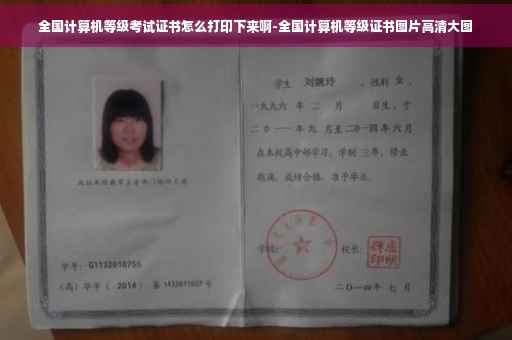 全国计算机等级考试证书怎么打印下来啊-全国计算机等级证书图片高清大图
学生 刘婉玲 ，性别 女 ，
一九九六 年 二 月 日生，于
二〇一一年 九 月至二〇一四年 六 月
在本校高中部学习，学制 三年，修业
期满，成绩合格，准予毕业。
学号：G1132010755
学校：
校长：
(高) 毕字 ( 2014 ) 第 1432011037 号
二〇一四年 七 月